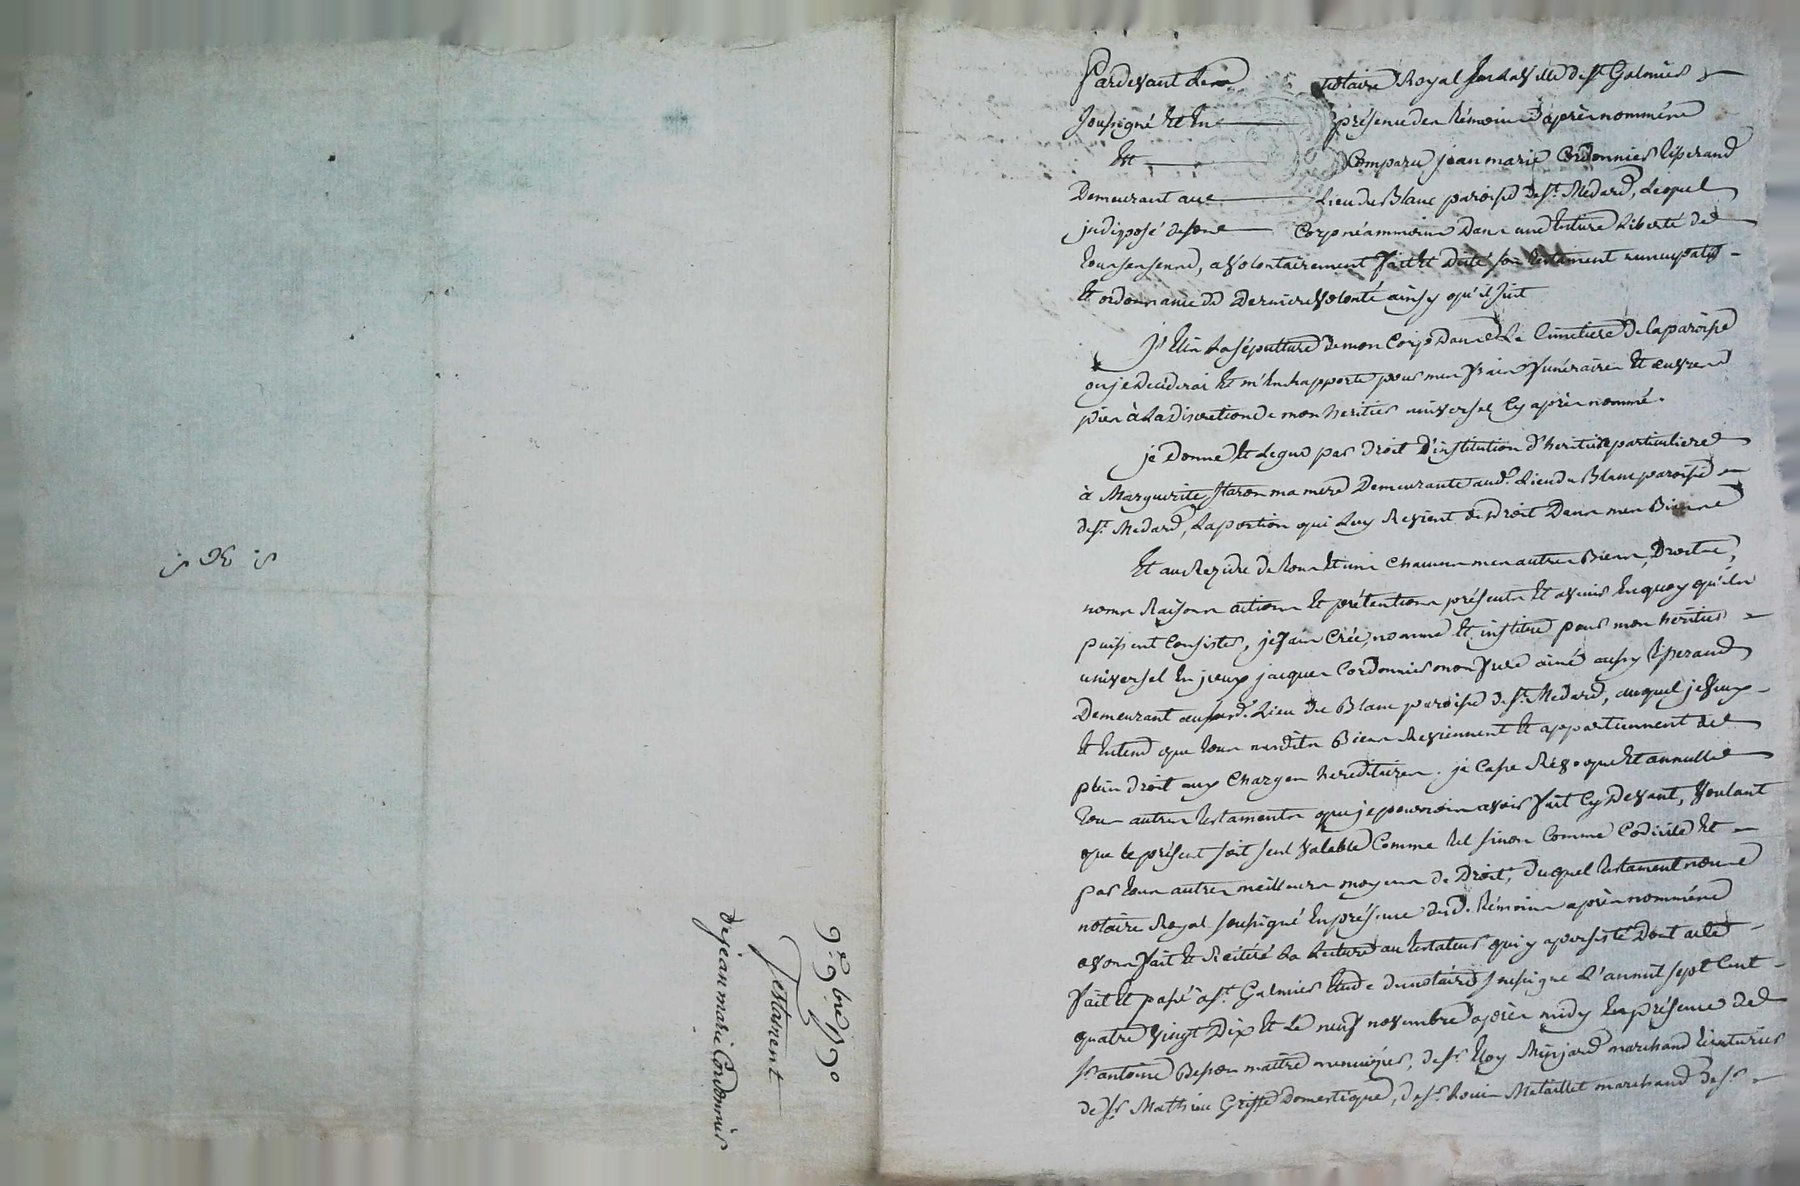 Pardevant Le notaire Royal en La Ville de St Galmier
soussigné Et En présence des témoins après nommés
Est Comparu jean marie Cordonnier tisserand
Demeurant au Lieu du Blanc paroisse de St Medard, Lequel
indisposé de son Corps néammoins Dans une Entiere Liberté de
tous ses sens, a volontairement fait Et dicté son testament nuncupatif
Et ordonnance de Derniere volonté ainsy qu'il suit
j'Elis La sépulture de mon Corps Dans Le Cimetiere de la paroisse
ou je Décéderai Et m'En rapporte pour mes frais funéraires Et œuvres
pies à La discretion de mon heritier universel Cy après nommé.
je donne Et Legue par droit d'institution d'heritiere particuliere
à Marguerite Staron ma mere Demeurante aud. Lieu du Blanc paroisse
de St Medard, La portion qui Luy Revient de droit Dans mes Biens
Et au Rezidu de tous Et uns Chacuns mes autres Biens, Droits,
noms Raisons actions Et prétentions présents Et avenir En quoy qu'ils
puissent Consister, je fais Crée, nomme Et institue pour mon héritier
universel En jceux jacques Cordonnier mon frere ainé aussy tisserand
Demeurant aud. Lieu du Blanc paroisse de St Medard, auquel je veux
Et Entend que tous mesdits Biens Reviennent Et appartiennent de
plein droit aux Charges hereditaires. je Casse Revoque Et annulle
tous autres testaments que je pourrois avoir fait Cy Devant, Voulant
que le présent soit seul valable Comme tel sinon Comme Codicile Et
par tous autres meilleurs moyens de Droit, duquel testament nous
notaire Royal soussigné En présence desd. témoins après nommés
avons fait Et Reitéré La Lecture au testateur qui y a persisté Dont acte
fait Et passé à St Galmier Etude du notaire soussigné L'an mil sept Cent
quatre vingt Dix Et Le neuf novembre après midy En présence de
sr antoine Besson maître menuizier, de sr Eloy Minjard marchand teinturier
de sr Mathieu Griffe Domestique, de sr Louis Metaillet marchand de sr
9e 9bre 1790
Testament
de jean marie Cordonnier